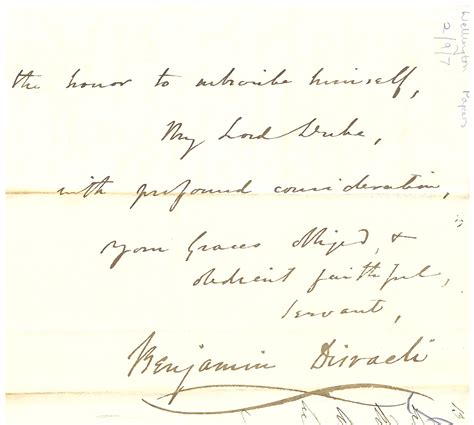 Wellington Papers
2/9/7
the honor to subscribe himself,
My Lord Duke,
with profound consideration,
your Graces obliged, &
obedient faithful,
servant,
Benjamin Disraeli